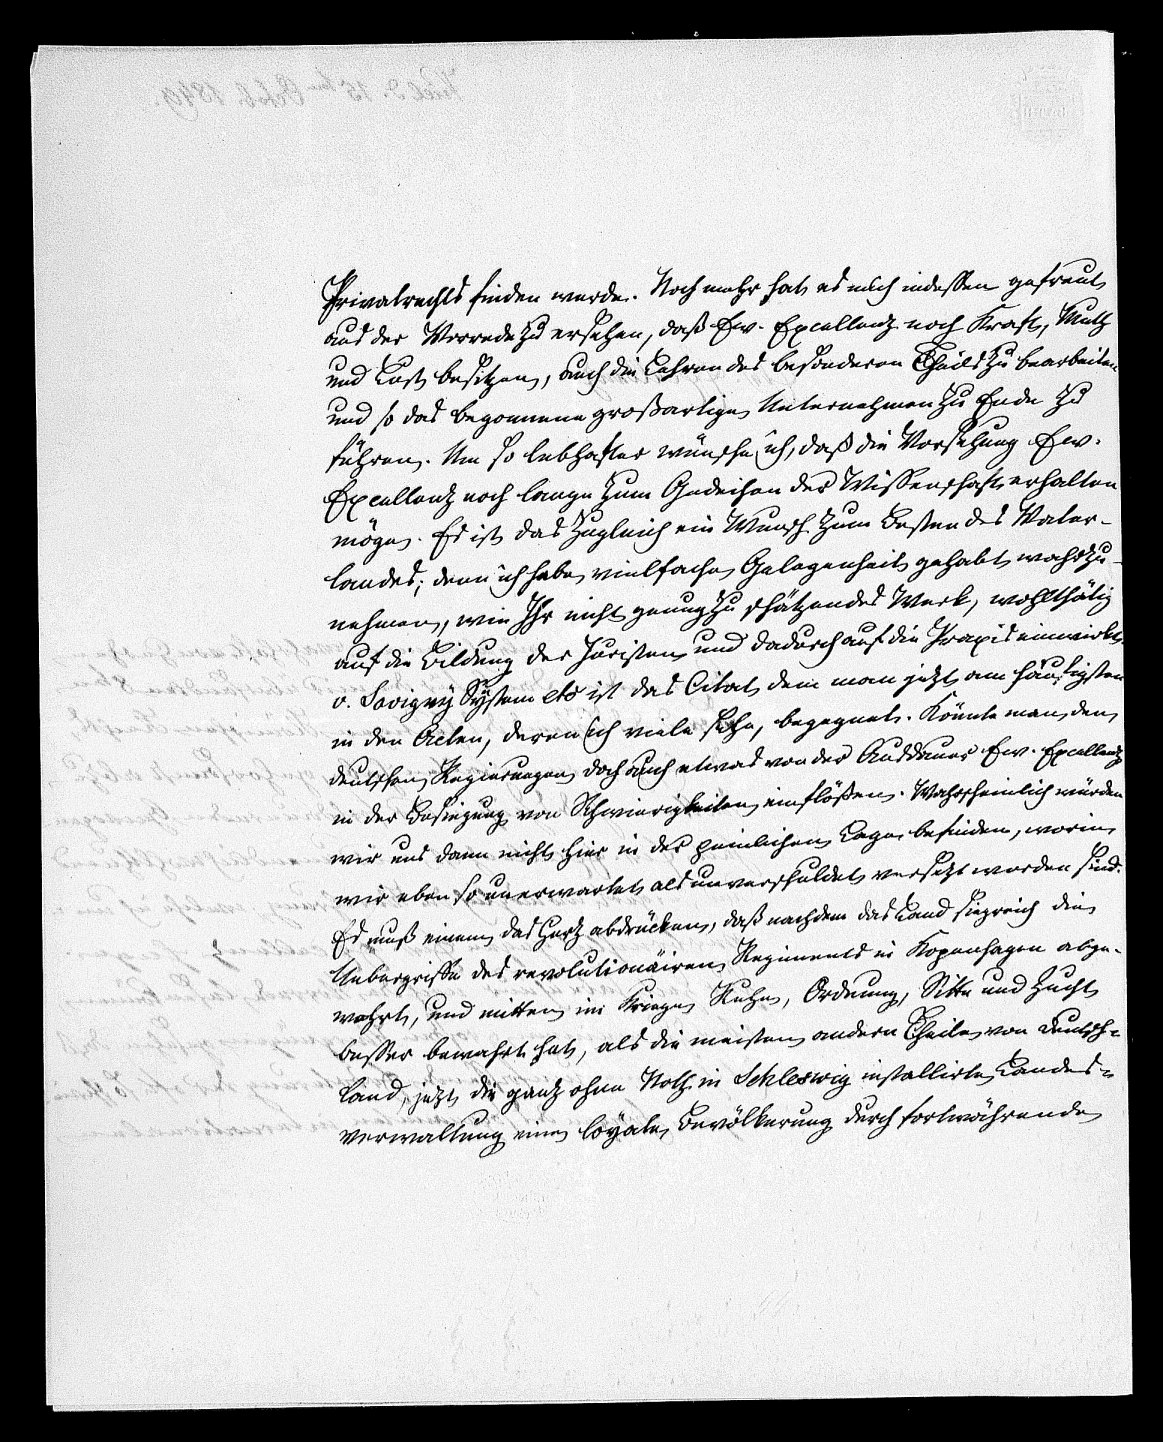 Privatrechts finden werde. Noch mehr hat es mich indessen gefreut
aus der Vorrede zu ersehen, daß Ew. Excellenz noch Kraft, Muth
und Lust besitzen, auch die Lehren des besonderen Theils zu bearbeiten
und so das begonnene großartige Unternehmen zu Ende zu
führen. Um so lebhafter wünsche ich, daß die Vorsehung Ew.
Excellenz noch lange zum Gedeihen der Wissenschaft erhalten
möge. Es ist das zugleich ein Wunsch zum Besten des Vater-
landes; denn ich habe vielfache Gelegenheit gehabt wahrzu-
nehmen, wie Ihr nicht genug zu schätzendes Werk, wohlthätig
auf die Bildung der Juristen und dadurch auf die Praxis einwirkt.
v. Savigny System etc ist das Citat dem man jetzt am häufigsten
in den Acten, deren ich viele sehe, begegnet. Könnte man den
deutschen Regierungen doch auch etwas von der Ausdauer Ew. Excellenz
in der Besiegung von Schwierigkeiten einflößen. Wahrscheinlich würden
wir uns dann nicht hier in der peinlichen Lage befinden, worin
wir eben so unerwartet als unverschuldet versetzt worden sind.
Es muß einem das Herz abdrücken, daß nachdem das Land siegreich die
Uebergriffe des revolutionairen Regiments in Kopenhagen abge-
wehrt, und mitten im Kriege Ruhe, Ordnung, Sitte und Zucht
besser bewahrt hat, als die meisten andern Theile von Deutsch-
land, jetzt die ganz ohne Noth in Schleswig installirte Landes-
verwaltung eine loyale Bevölkerung durch fortwährende